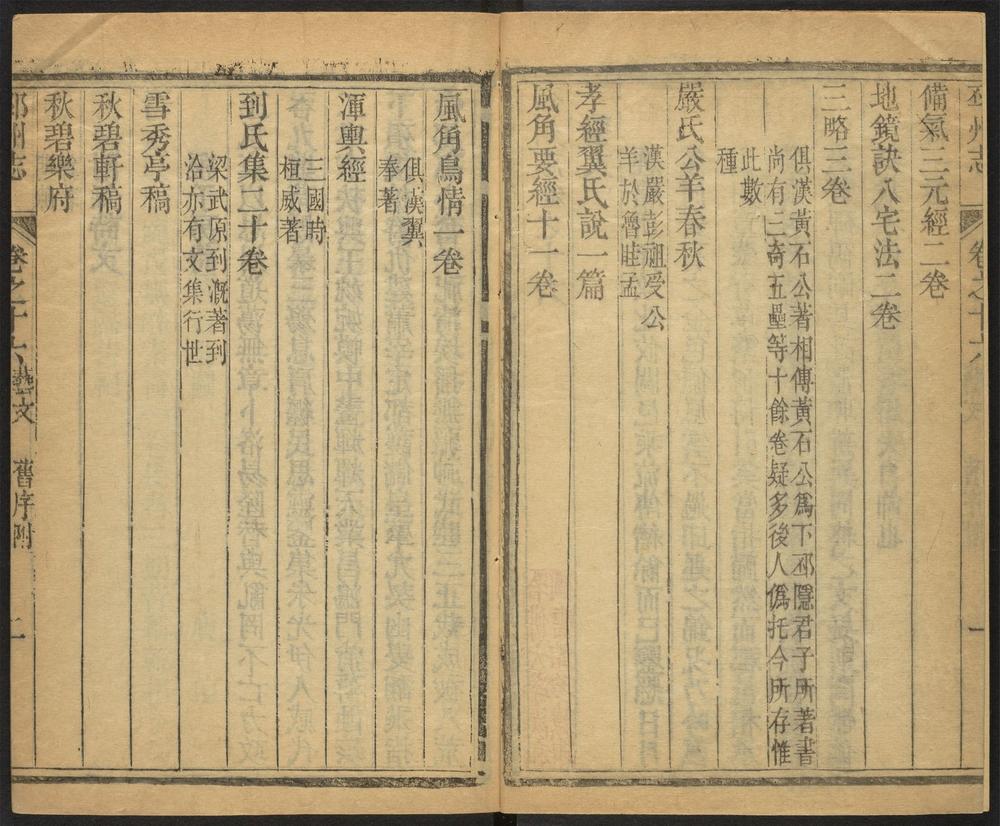 邳州志 卷之十八 一
備氣三元經二卷
地鏡訣八宅法二卷
三略三卷
俱漢黃石公著相傳黃石公爲下邳隱君子所著書
尚有三奇五壘等十餘卷疑多後人僞托今所存惟
此數
種
嚴氏公羊春秋
漢嚴彭祖受公
羊於魯眭孟
孝經翼氏說一篇
風角要經十一卷
風角鳥情一卷
俱漢翼
奉著
渾輿經
三國時
桓威著
到氏集二十卷
梁武原到溉著到
洽亦有文集行世
雪秀亭稿
秋碧軒稿
秋碧樂府
邳州志 卷之十八藝文 舊序附 二